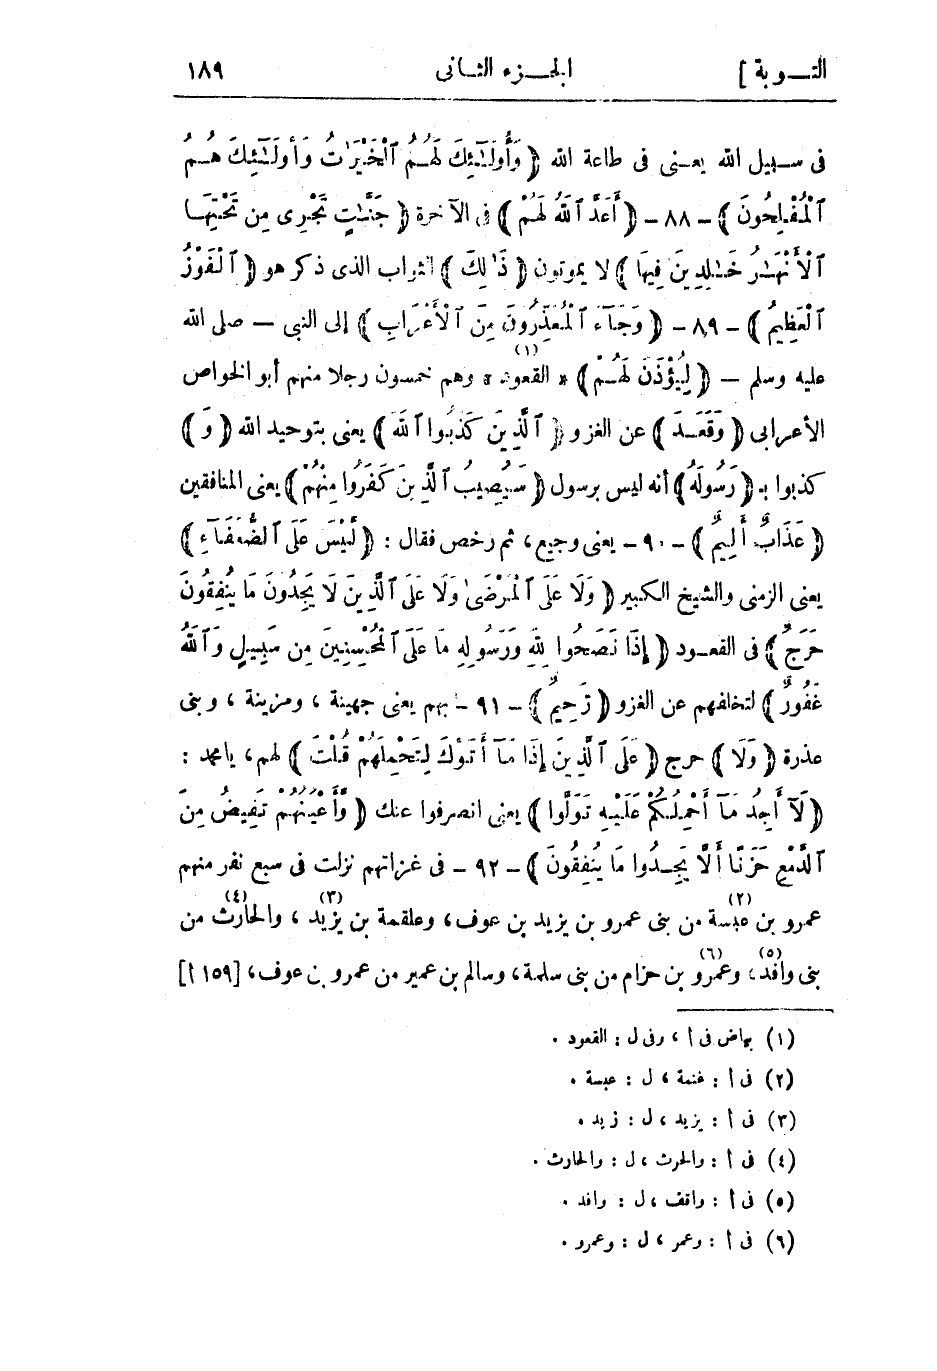 التــوبة ]
الجــزء الثـانى
١٨٩
فى سـبيل الله يعـنى فى طاعة الله ﴿ وَأُولَـٰٓئِكَ لَهُـمُ ٱلْخَيْرَٰتُ وَأُولَـٰٓئِكَ هُـمُ
ٱلْمُفْلِحُونَ ﴾ - ٨٨ - ﴿ أَعَدَّ ٱللَّهُ لَهُمْ ﴾ فى الآخرة ﴿ جَنَّـٰتٍ تَجْرِى مِن تَحْتِهَـا
ٱلْأَنْهَـٰرُ خَـٰلِدِينَ فِيهَا ﴾ لا يموتون ﴿ ذَٰلِكَ ﴾ الثواب الذى ذكر هو ﴿ ٱلْفَوْزُ
ٱلْعَظِيمُ ﴾ - ٨٩ - ﴿ وَجَآءَ ٱلْمُعَذِّرُونَ مِنَ ٱلْأَعْرَابِ ﴾ إلى النبى — صلى الله
عليه وسلم — ﴿ لِيُؤْذَنَ لَهُـمْ ﴾ « القعود (١) » وهم خمسون رجلا منهم أبو الخواص
الأعرابى ﴿ وَقَعَـدَ ﴾ عن الغزو ﴿ ٱلَّذِينَ كَذَبُوا ٱللَّهَ ﴾ يعنى بتوحيد الله ﴿ وَ ﴾
كذبوا بـ ﴿ رَسُولَهُ ﴾ أنه ليس برسول ﴿ سَيُصِيبُ ٱلَّذِينَ كَفَرُوا مِنْهُمْ ﴾ يعنى المنافقين
﴿ عَذَابٌ أَلِيمٌ ﴾ - ٩٠ - يعنى وجيع، ثم رخص فقال : ﴿ لَّيْسَ عَلَى ٱلضُّعَفَآءِ ﴾
يعنى الزمنى والشيخ الكبير ﴿ وَلَا عَلَى ٱلْمَرْضَىٰ وَلَا عَلَى ٱلَّذِينَ لَا يَجِدُونَ مَا يُنْفِقُونَ
حَرَجٌ ﴾ فى القعـود ﴿ إِذَا نَصَحُوا لِلَّهِ وَرَسُولِهِ مَا عَلَى ٱلْمُحْسِنِينَ مِن سَبِيلٍ وَٱللَّهُ
غَفُورٌ ﴾ لتخلفهم عن الغزو ﴿ رَحِيمٌ ﴾ - ٩١ - بهم يعنى جهينة ، ومزينة ، وبنى
عذرة ﴿ وَلَا ﴾ حرج ﴿ عَلَى ٱلَّذِينَ إِذَا مَآ أَتَوْكَ لِتَحْمِلَهُمْ قُلْتَ ﴾ لهم، يا محمد :
﴿ لَآ أَجِدُ مَـآ أَحْمِلُكُمْ عَلَيْهِ تَوَلَّوا ﴾ يعنى انصرفوا عنك ﴿ وَّأَعْيُنُهُمْ تَفِيضُ مِنَ
ٱلدَّمْعِ حَزَنًا أَلَّا يَجِـدُوا مَا يُنفِقُونَ ﴾ - ٩٢ - فى غزاتهم نزلت فى سبع نفر منهم
عمرو بن عبسة (٢) من بنى عمرو بن يزيد بن عوف، وعلقمة بن يزيد (٣) ، والحارث (٤) من
بنى وافد (٥)، وعمرو (٦) بن حزام من بنى سلمة، وسالم بن عمير من عمرو بن عوف، [١٥٩ أ]
(١) بياض فى أ ، وفى ل : القعود .
(٢) فى أ : غنمة ، ل : عبسة .
(٣) فى أ : يزيد ، ل : زيد .
(٤) فى أ : والحرث ، ل : والحارث .
(٥) فى أ : واقف ، ل : وافد .
(٦) فى أ : وعمر ، ل : وعمرو .